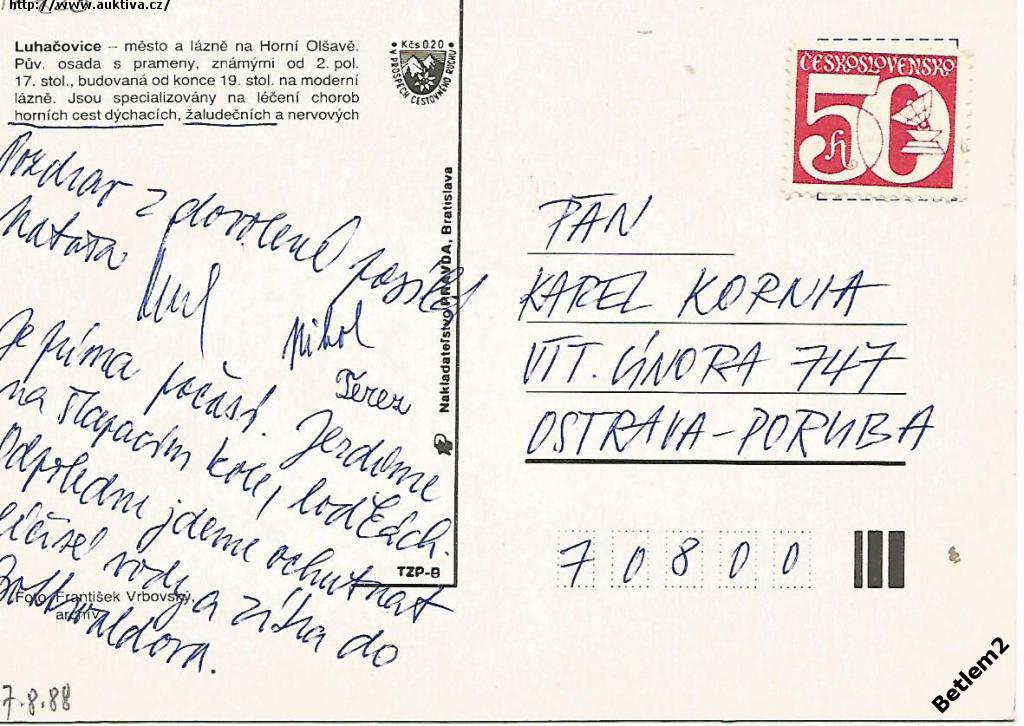 http://www.auktiva.cz/
Luhačovice – město a lázně na Horní Olšavě.
Pův. osada s prameny, známými od 2. pol.
17. stol., budovaná od konce 19. stol. na moderní
lázně. Jsou specializovány na léčení chorob
horních cest dýchacích, žaludečních a nervových
Kčs 0.20
V PROSPĚCH CESTOVNÉHO RUCHU
ČESKOSLOVENSKO
50 h
Pozdrav z dovolené posílá
Nataša
Nikol
Terez
Je prima počasí. Jezdíme
na šlapacím kole, loďkách.
Odpoledne jdeme ochutnat
léčivé vody a zítra do
Gottwaldova.
Nakladateľstvo PRAVDA, Bratislava
TZP-8
Foto František Vrbovský,
archív
7.8.88
PAN
KAREL KORNIA
VÍT. ÚNORA 747
OSTRAVA-PORUBA
70800
Betlem2